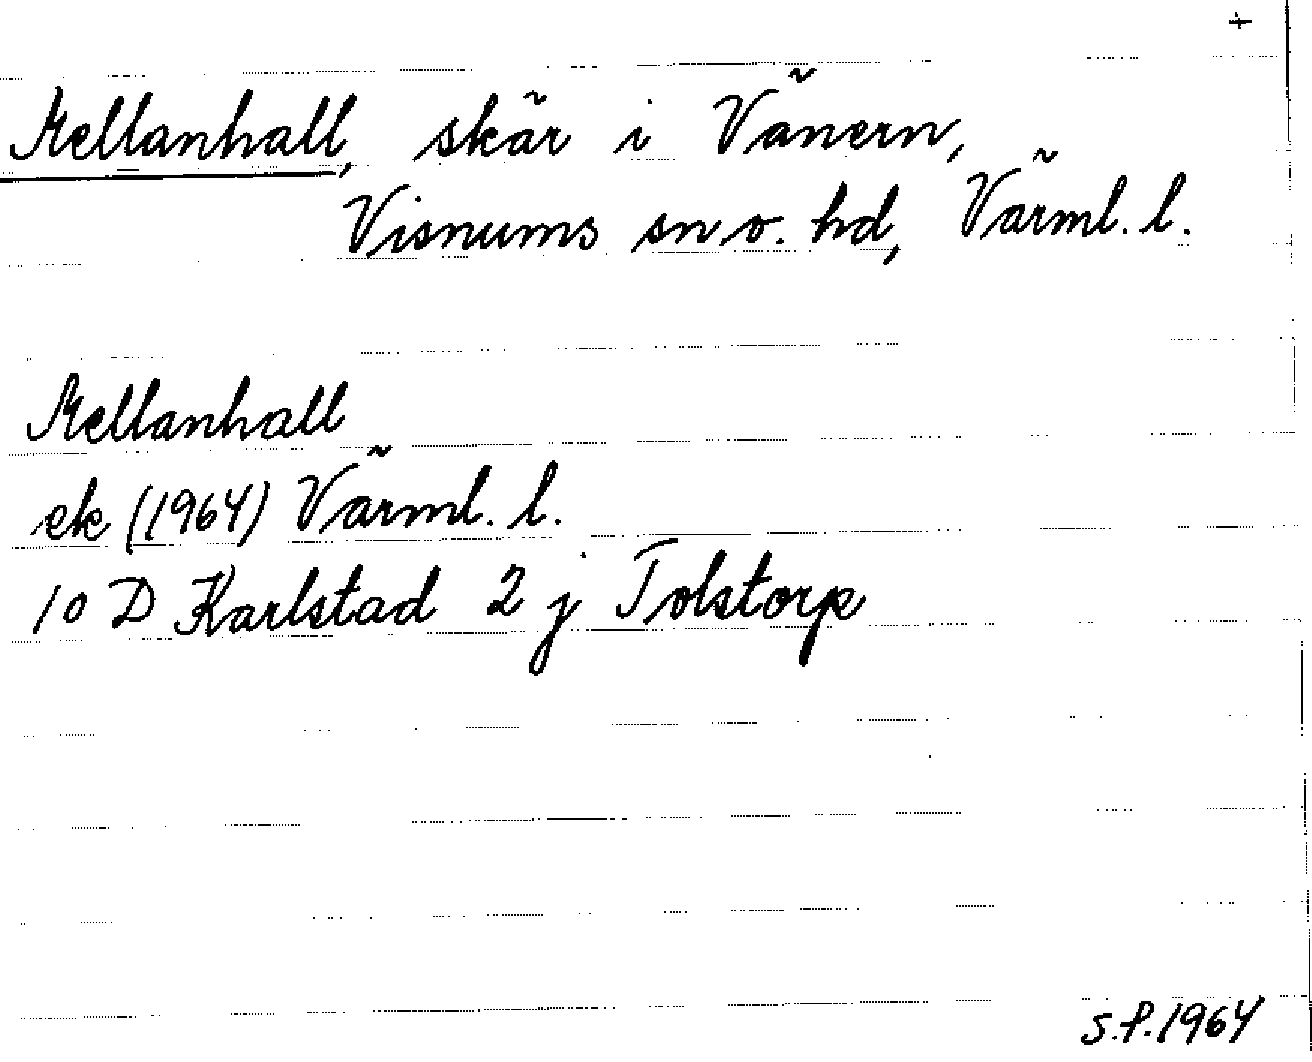 +
Mellanhall, skär i Vänern,
Visnums sn o. hd, Värml. l.
Mellanhall
ek (1964) Värml. l.
10 D Karlstad 2 j Tolstorp
S.P. 1964